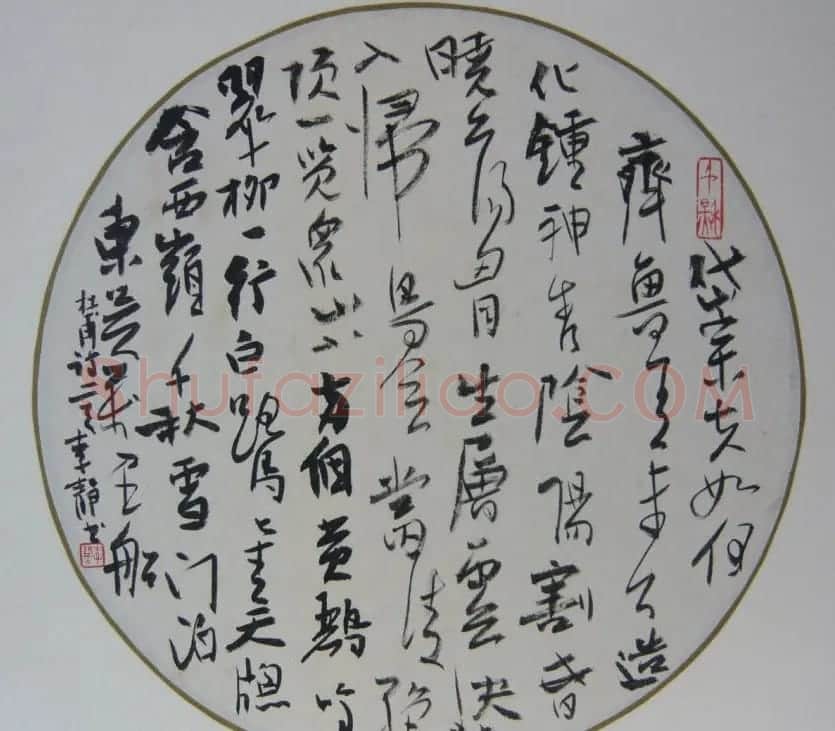 岱宗夫如何
齊魯青未了造
化鍾神秀陰陽割昏
曉盪胸生層雲決
入歸鳥會當凌絕
頂一览眾山小两個黄鹂鸣
翠柳一行白鹭上青天牕
含西嶺千秋雪门泊
東吴萬里船
杜甫诗二首李静书
Shufaziliao.COM